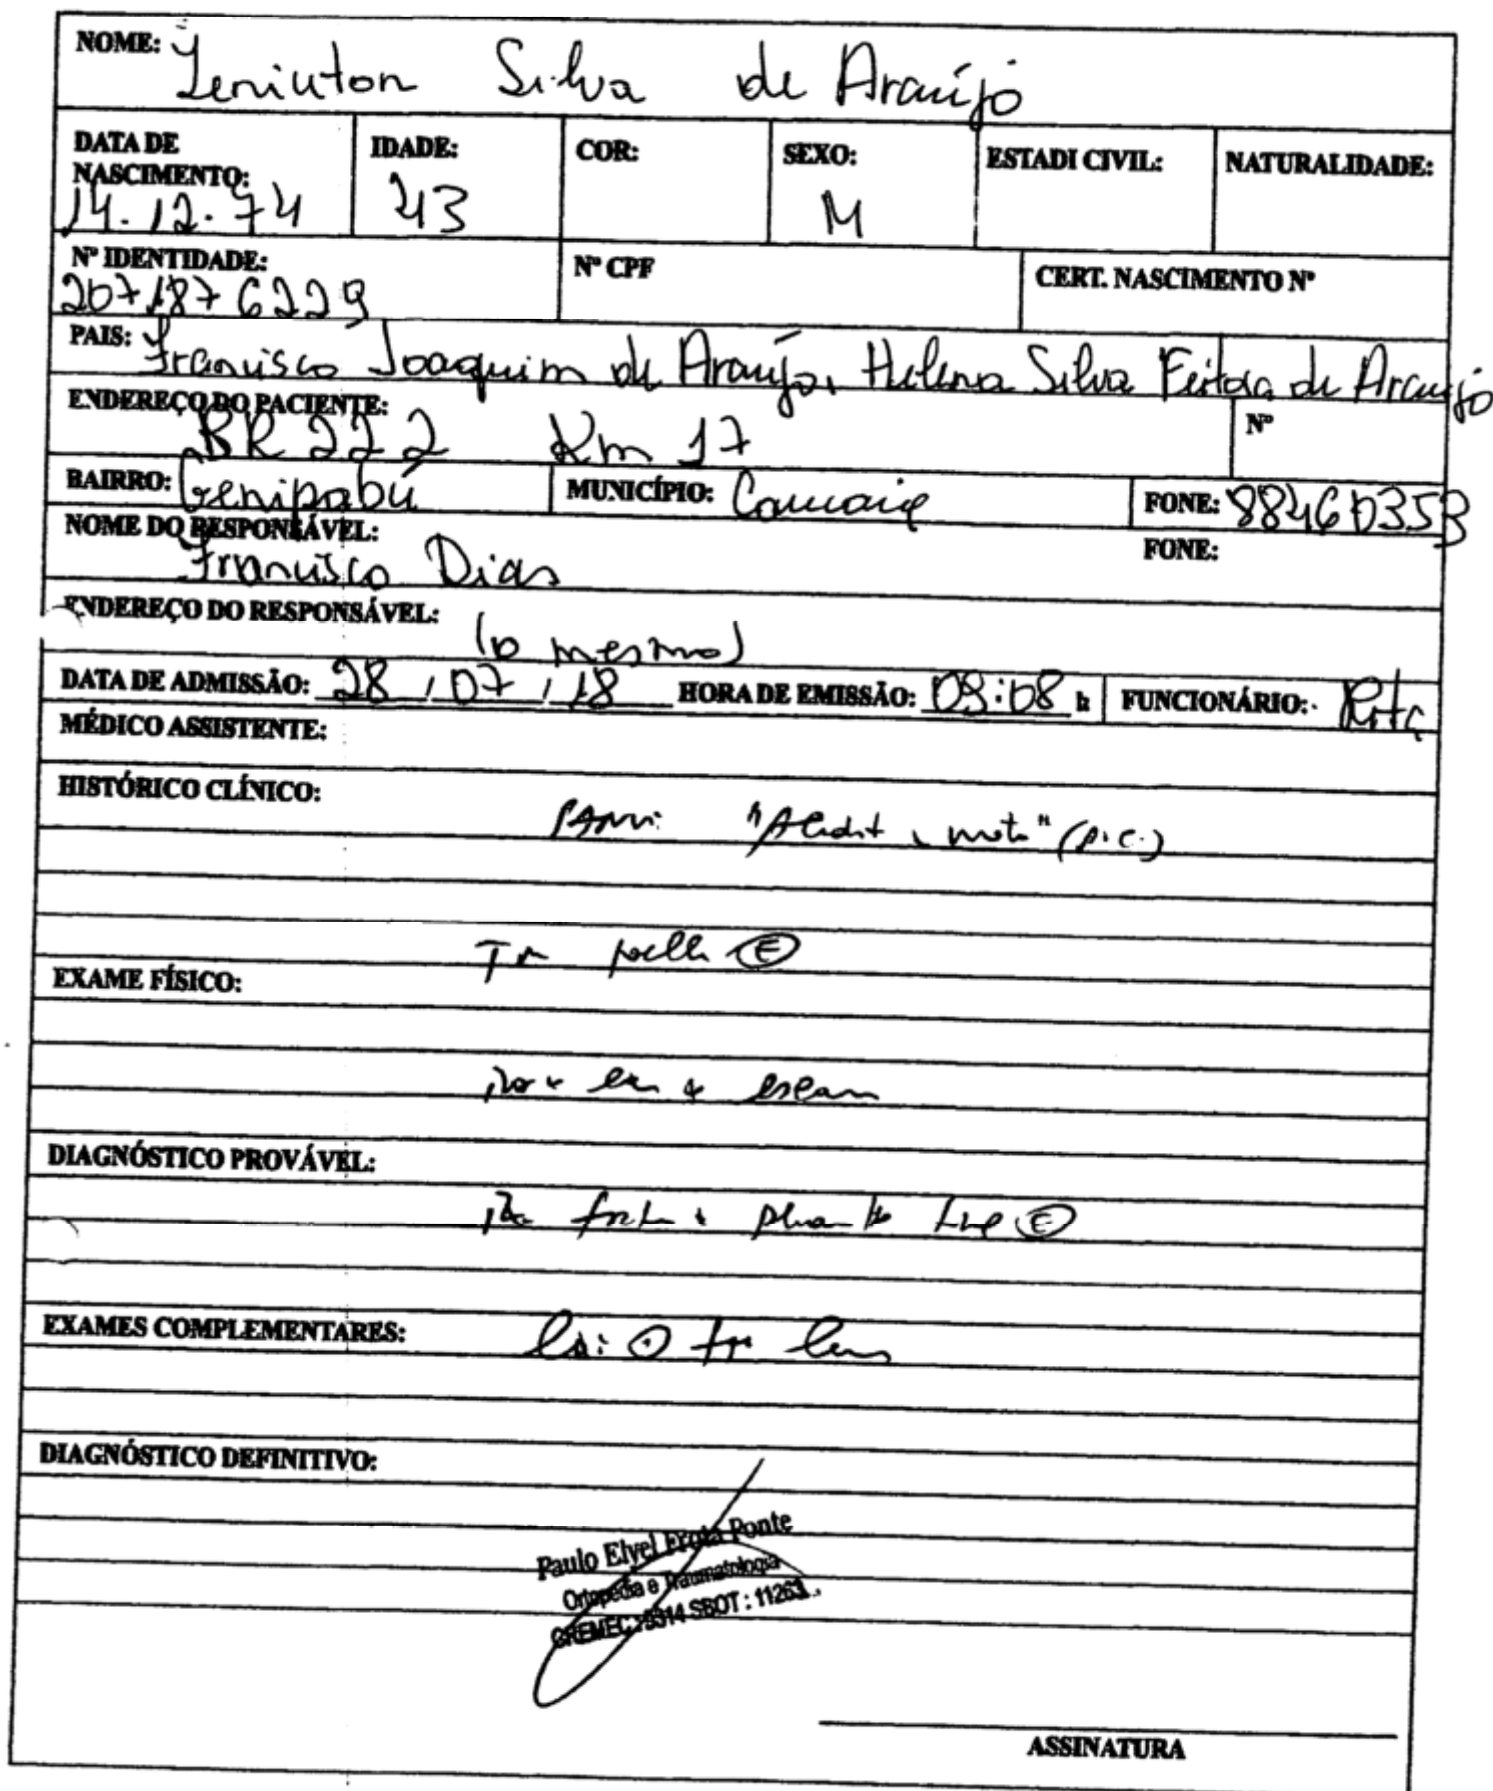 NOME: Silva de Araújo
DATA DE NASCIMENTO: 14.12.74 IDADE: 43 COR: SEXO: M ESTADI CIVIL: NATURALIDADE:
Nº IDENTIDADE: 2071876229 Nº CPF CERT. NASCIMENTO Nº
PAIS: Francisco Joaquim de Araújo, Helena Silva Feitosa de Araújo
ENDEREÇO DO PACIENTE: BR 222 Km 17 Nº
BAIRRO: Genipabú MUNICÍPIO: FONE: 88460353
NOME DO RESPONSÁVEL: Francisco Dias FONE:
ENDEREÇO DO RESPONSÁVEL: (o mesmo)
DATA DE ADMISSÃO: 28 / 07 / 18 HORA DE EMISSÃO: 09:08 h FUNCIONÁRIO: Rita
MÉDICO ASSISTENTE:
HISTÓRICO CLÍNICO:
EXAME FÍSICO:
DIAGNÓSTICO PROVÁVEL:
EXAMES COMPLEMENTARES:
DIAGNÓSTICO DEFINITIVO:
Paulo Elvel Frota Ponte
Ortopedia e Traumatologia
CREMEC: 9314 SBOT: 11263
ASSINATURA